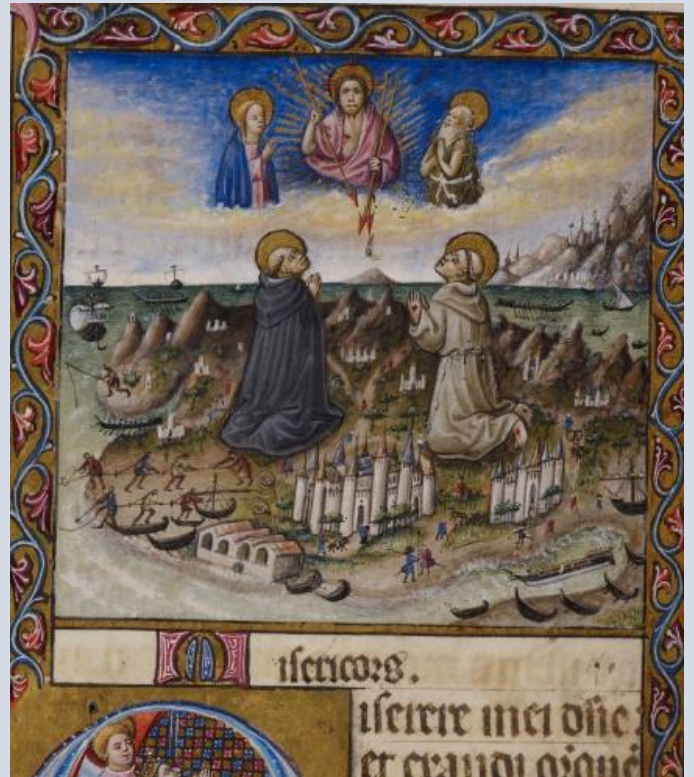 Misericors.
iserere mei dñe
et exaudi